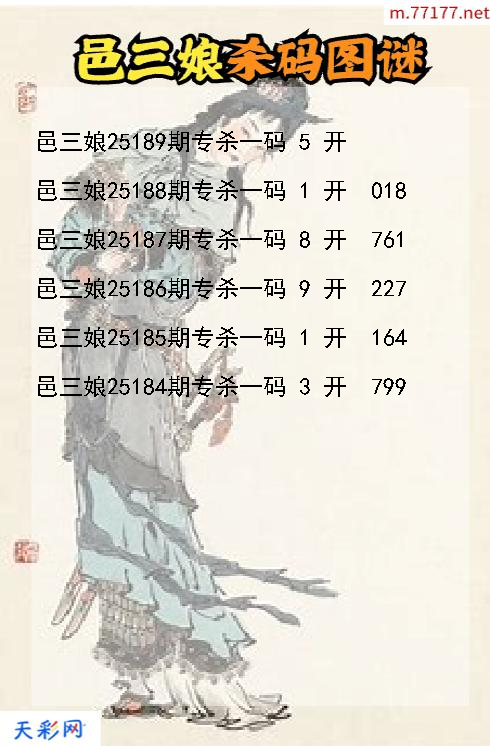 m.77177.net
邑三娘杀码图谜
邑三娘25189期专杀一码 5 开
邑三娘25188期专杀一码 1 开 018
邑三娘25187期专杀一码 8 开 761
邑三娘25186期专杀一码 9 开 227
邑三娘25185期专杀一码 1 开 164
邑三娘25184期专杀一码 3 开 799
天彩网